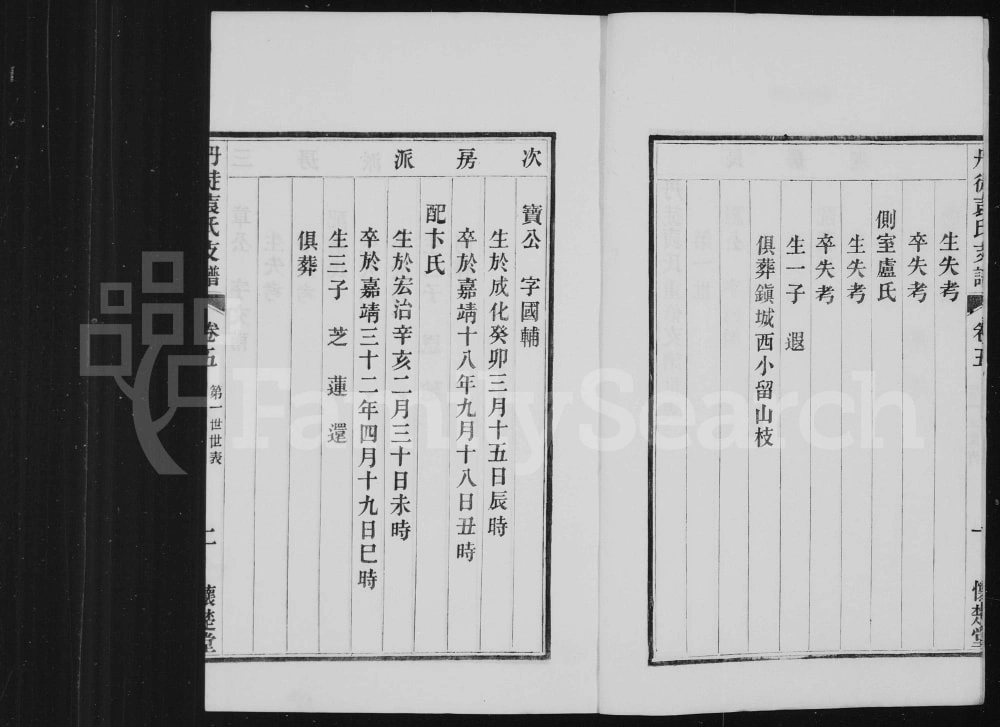 丹徒袁氏支譜
卷五
一
懷楚堂
生失考
卒失考
側室盧氏
生失考
卒失考
生一子 遐
俱葬鎮城西小留山枝
次房派
寶公 字國輔
生於成化癸卯三月十五日辰時
卒於嘉靖十八年九月十八日丑時
配卞氏
生於宏治辛亥二月三十日未時
卒於嘉靖三十二年四月十九日巳時
生三子 芝 蓮 還
俱葬
丹徒袁氏支譜
卷五
第一世世表
二
懷楚堂
FamilySearch